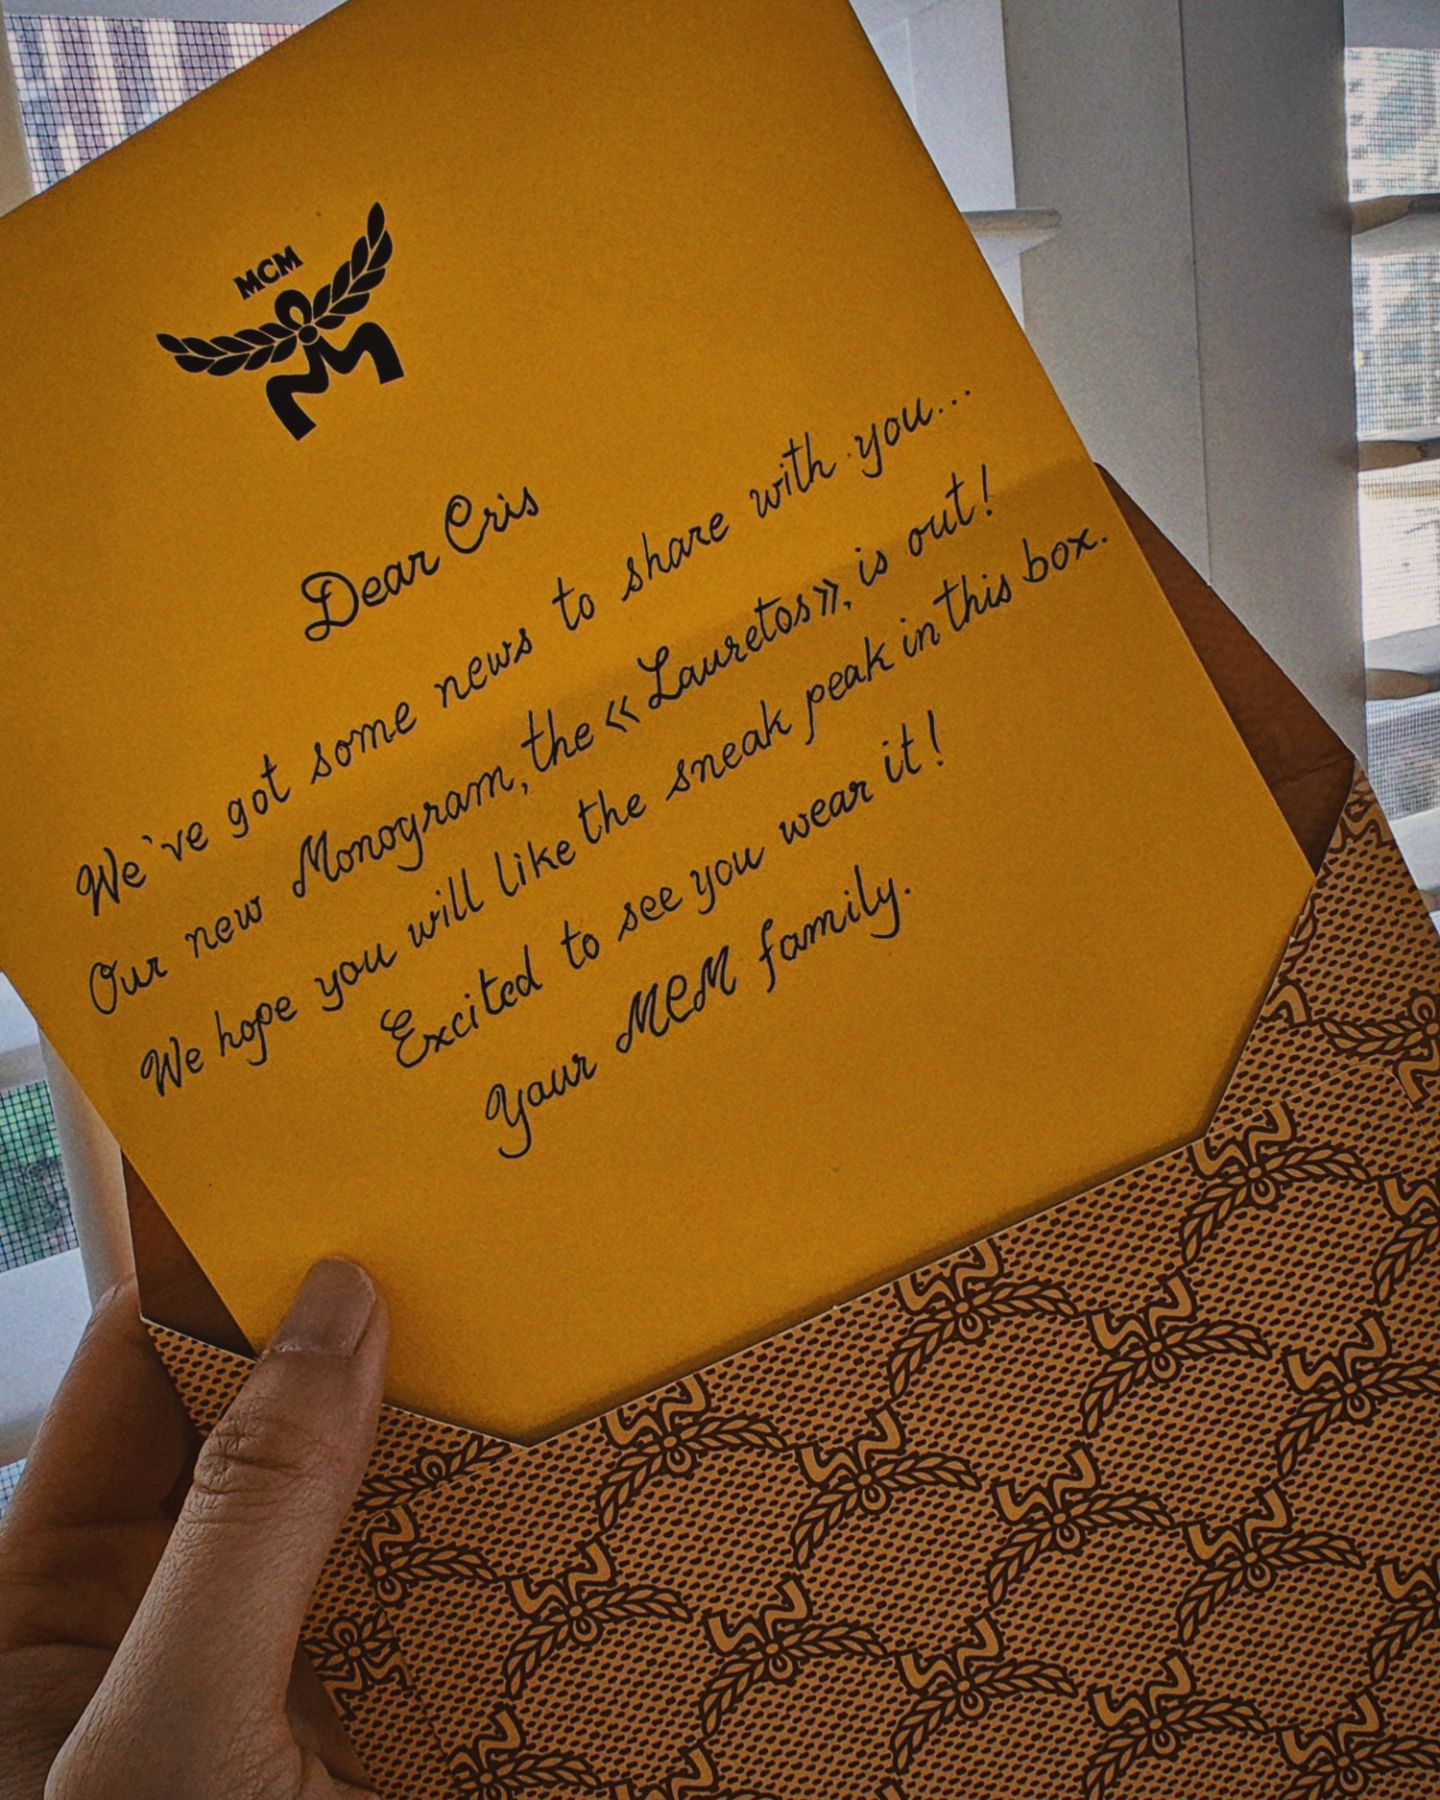 MCM
Dear Cris
We've got some news to share with you...
Our new Monogram, the « Lauretos », is out!
We hope you will like the sneak peak in this box.
Excited to see you wear it!
Your MCM family.